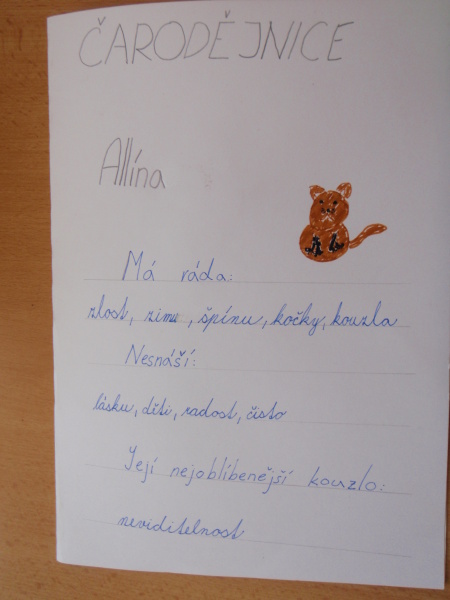 ČARODĚJNICE
Allína
Má ráda:
zlost, zimu, špínu, kočky, kouzla
Nesnáší:
lásku, děti, radost, čisto
Její nejoblíbenější kouzlo:
neviditelnost